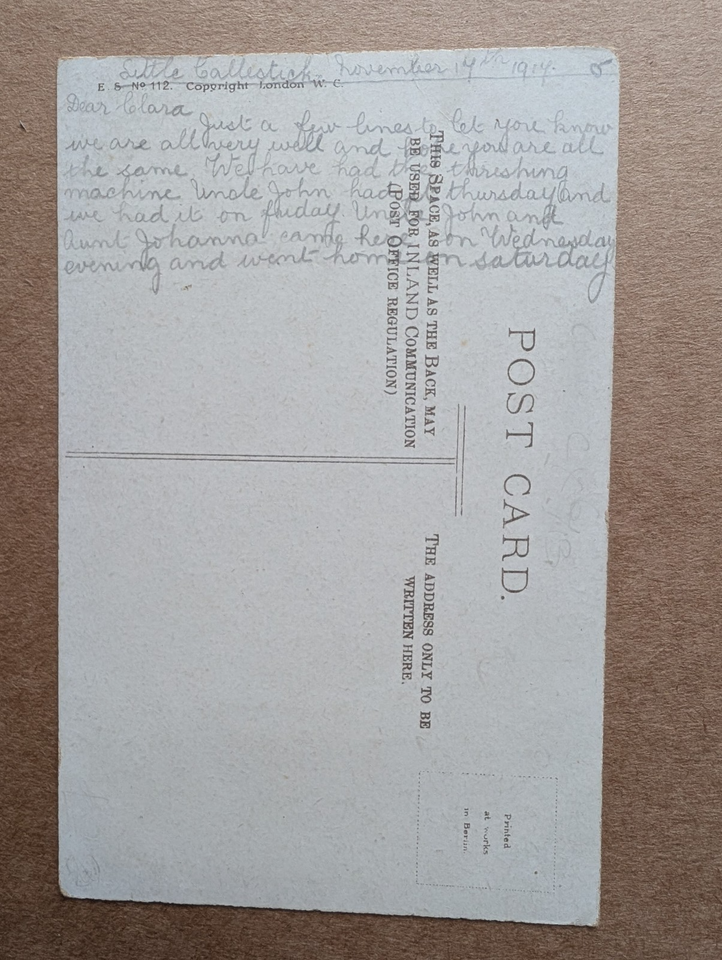 Little Callestick November 17th 1914.
E. S. No 112. Copyright London W. C.
Dear Clara
Just a few lines to let you know
we are all very well and hope you are all
the same. We have had the threshing
machine Uncle John had it thursday and
we had it on friday. Uncle John and
Aunt Johanna came here on Wednesday
evening and went home on saturday
THIS SPACE, AS WELL AS THE BACK, MAY
BE USED FOR INLAND COMMUNICATION
(POST OFFICE REGULATION)
POST CARD.
THE ADDRESS ONLY TO BE
WRITTEN HERE.
Printed
at works
in Berlin.